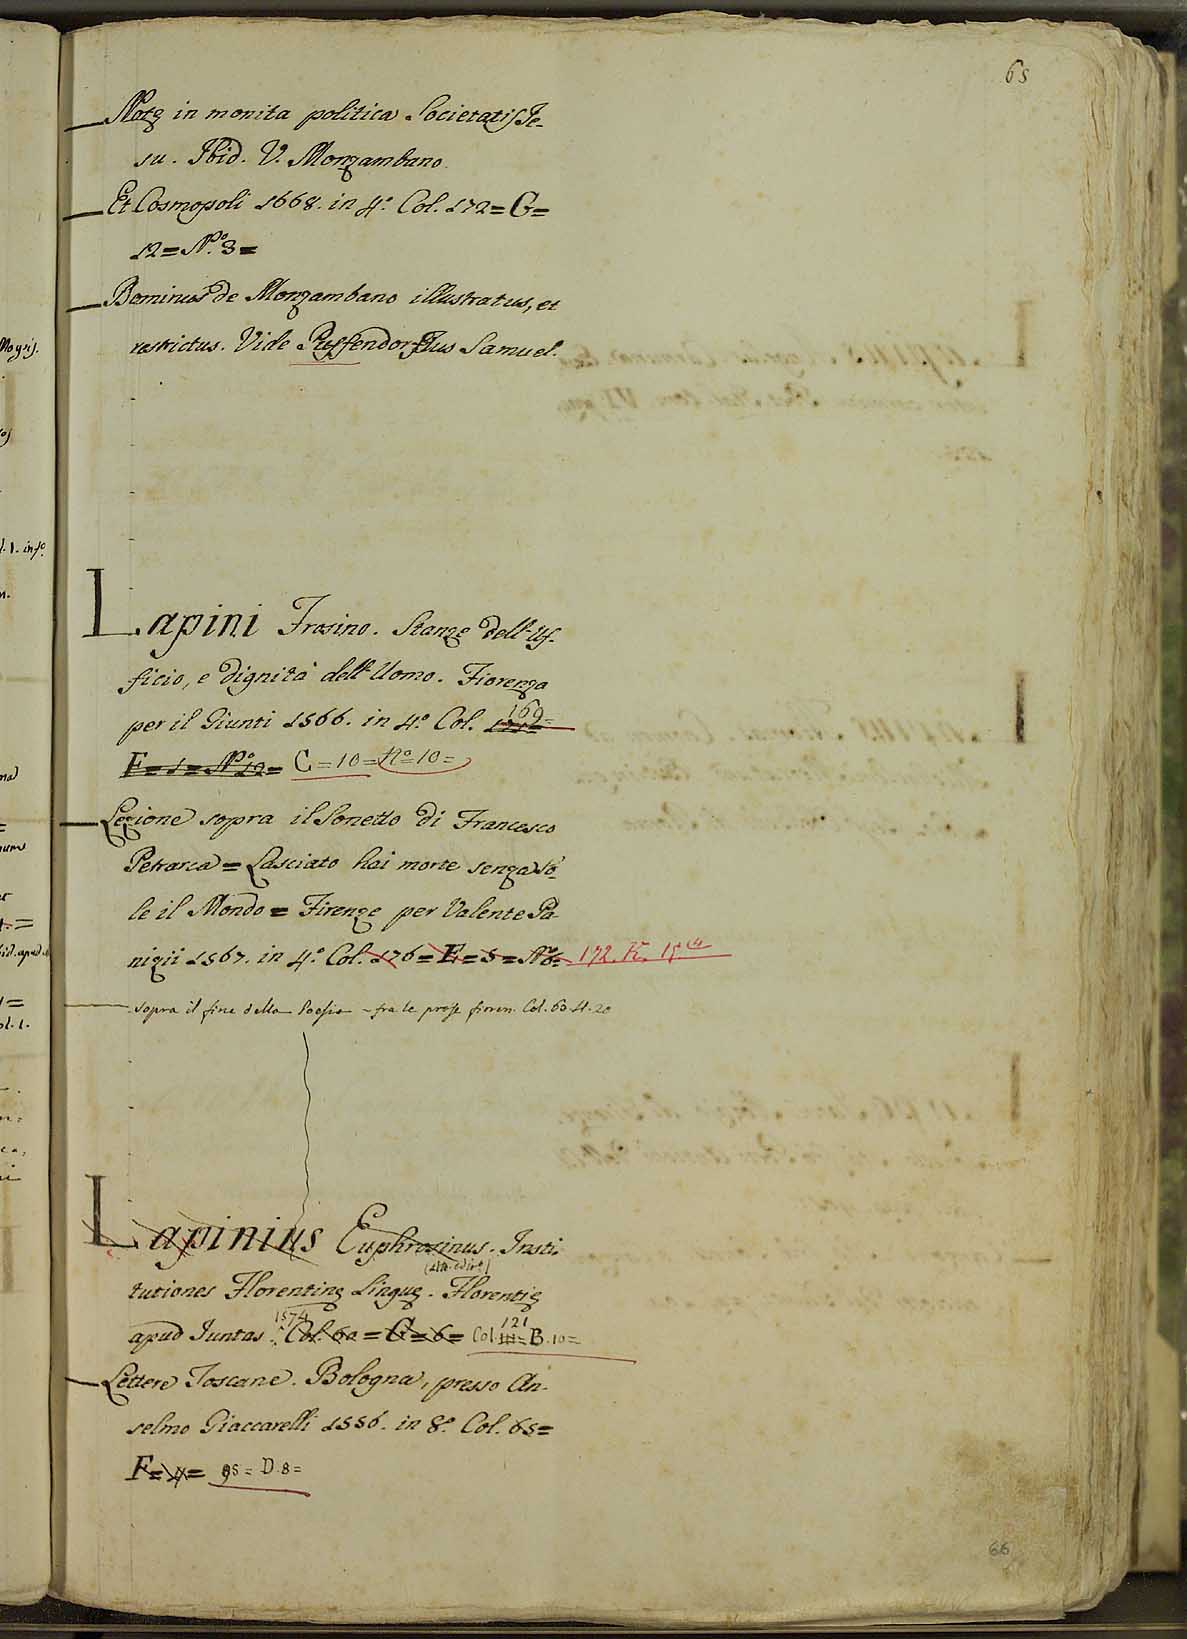 65
Notę in monita politica Societatis Je-
su. Ibid. V. Monzambano.
Et Cosmopoli 1668. in 4.° Col. 172 = G =
12 = N.° 3 =
Dominus de Monzambano illustratus, et
restrictus. Vide Puffendorfius Samuel.
Lapini Frosino. Stanze dell'Uf-
ficio, e dignità dell'Uomo. Fiorenza
per il Giunti 1566. in 4.° Col. 169=
F = 1 = N.° 19 = C = 10 = N.° 10 =
Lezione sopra il Sonetto di Francesco
Petrarca = Lasciato hai morte senza So-
le il Mondo = Firenze per Valente Pa-
nizii 1567. in 4.° Col. 176 = E = 5 = N.° 6= 172. K. 15.
sopra il fine della Poesia - fra le prose fioren. Col. 60. H. 20
Lapinius Euphrosinus. Insti-
tutiones Florentinę Linguę. Florentię
apud Juntas. 1574 Col. 60 = G = 6 = Col. 121 = B. 10 =
Lettere Toscane. Bologna, presso An-
selmo Giaccarelli 1556. in 8.° Col. 65=
F = 4 = 95 = D. 8 =
66